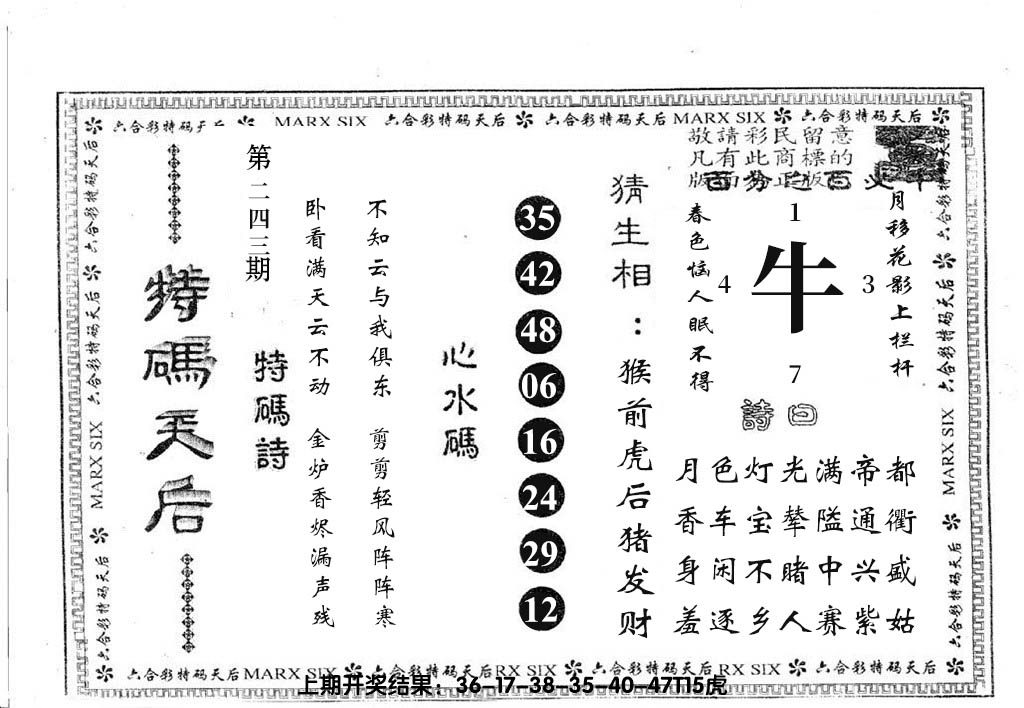 六合彩特码天后 MARX SIX 六合彩特码天后 六合彩特码天后 MARX SIX 六合彩特码天后
敬請彩民留意
凡有此商標的
版面為正版
1
牛
4
3
7
月移花影上栏杆
春色恼人眠不得
詩曰
月色灯光满帝都
香车宝辇隘通衢
身闲不睹中兴盛
羞逐乡人赛紫姑
猜生相：猴前虎后猪发财
35
42
48
06
16
24
29
12
心水碼
不知云与我俱东 剪剪轻风阵阵寒
卧看满天云不动 金炉香烬漏声残
特碼詩
第二四三期
特碼天后
六合彩特码天后 六合彩特码天后 MARX SIX 六合彩特码天后
六合彩特码天后 六合彩特码天后 MARX SIX 六合彩特码天后
六合彩特码天后 MARX SIX 六合彩特码天后 RX SIX 六合彩特码天后 RX SIX 六合彩特码天后
上期开奖结果：36-17-38-35-40-47T15虎